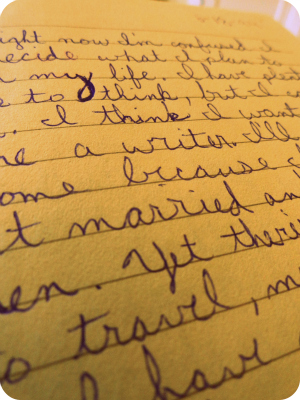 ight now I'm confused I
decide what I plan to
my life. I have
to think, but I
I think I want
a writer. I'll
ome because
t married an
en. Yet ther
to travel, m
I have